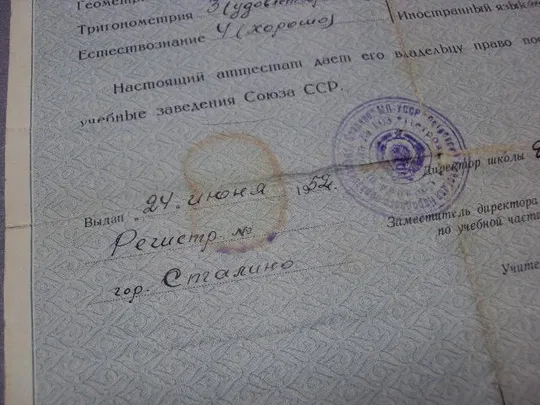 Геометрия
Тригонометрия 3 (удовлетвор
Естествознание 4 (хорошо)
Иностранный язык
Настоящий аттестат дает его владельцу право пос
учебные заведения Союза ССР.
Директор школы
Выдан „24“ июня 1952 г.
Заместитель директора
по учебной част
Регистр. №
гор. Сталино
Учите